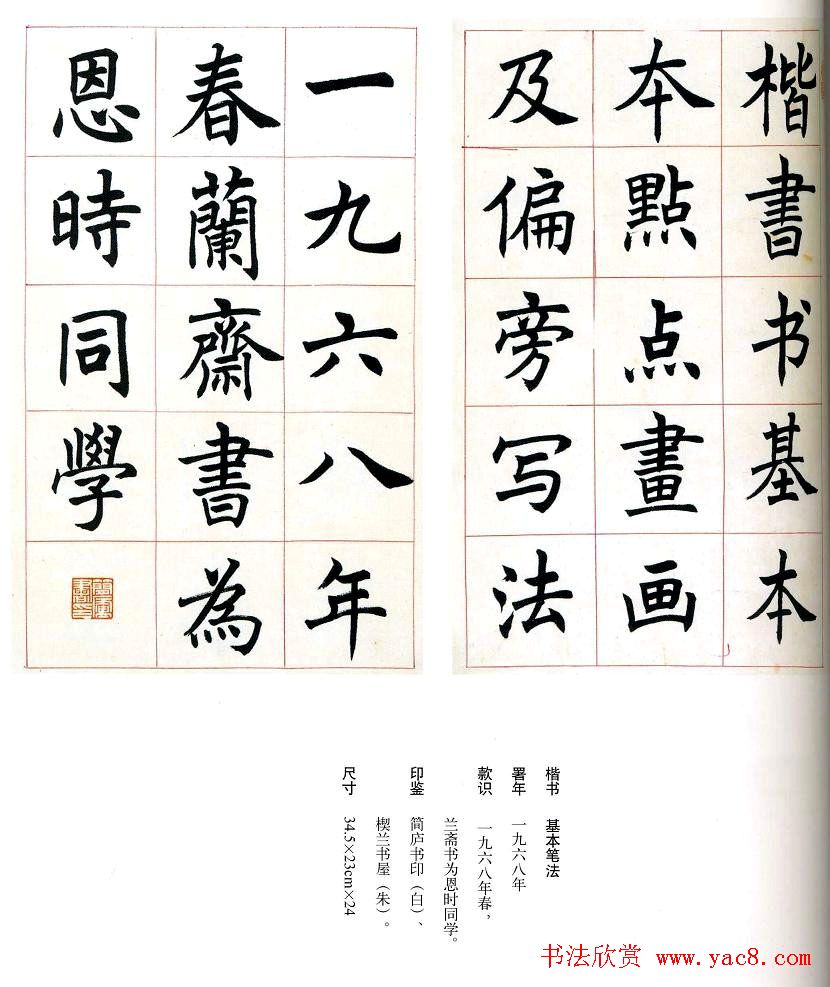 楷書书基本
夲點点畫画
及偏旁写法
一九六八年
春蘭齋書為
恩時同學
楷书 基本笔法
署年 一九六八年
款识 一九六八年春，
兰斋书为恩时同学。
印鉴 简庐书印（白）、
楔兰书屋（朱）。
尺寸 34.5×23cm×24
书法欣赏 www.yac8.com